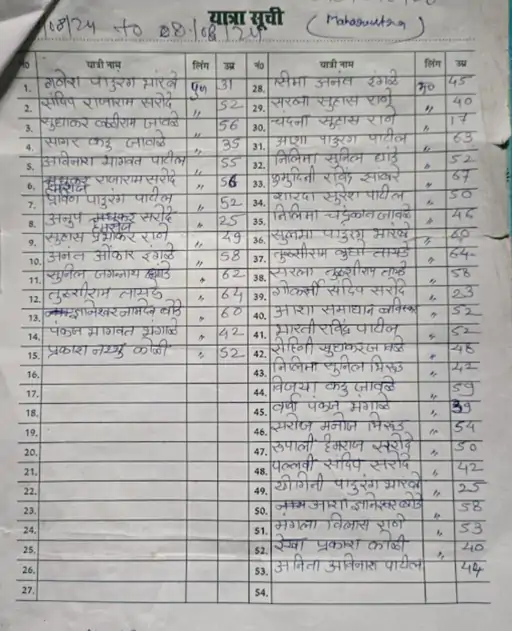 /08/24 to 08/08/24
यात्रा सूची
(Maharashtra)
न0 यात्री नाम लिंग उम्र न0 यात्री नाम लिंग उम्र
1. गणेश पांडुरंग भारंबे पु0 31
2. संदिप राजाराम सरोदे " 52
3. सुधाकर जावळे " 56
4. सागर कडू जावळे " 35
5. अविनाश भागवत पाटील " 55
6. हेमराज राजाराम सरोदे " 56
7. प्रविण पांडुरंग पाटील " 52
8. अनुप हेमराज सरोदे " 25
9. सुहास प्रभाकर राणे " 49
10. अनंत ओंकार इंगळे " 58
11. सुनिल जगन्नाथ " 62
12. तुळशीराम तायडे " 64
13. ज्ञानेश्वर नामदेव " 60
14. पंकज भागवत भंगाळे " 42
15. प्रकाश नथ्थु कोळी " 52
16.
17.
18.
19.
20.
21.
22.
23.
24.
25.
26.
27.
28. सिमा अनंत इंगळे म0 45
29. सरला सुहास राणे " 40
30. चंदना सुहास राणे " 17
31. आशा पांडुरंग पाटील " 63
32. निलिमा सुनिल " 52
33. कुमुदिनी रविंद्र " 67
34. शारदा सुरेश पाटील " 50
35. निलिमा चंद्रकांत जावळे " 46
36. सुलभा पांडुरंग भारंबे " 60
37. तुळशीराम तायडे " 64
38. सरला तुळशीराम " 58
39. गोकर्णा संदिप सरोदे " 23
40. आशा समाधान " 52
41. भारती रविंद्र पाटील " 52
42. रोहिनी सुधाकर जावळे " 48
43. निलिमा सुनिल " 42
44. विजया कडू जावळे " 59
45. वर्षा पंकज भंगाळे " 39
46. सरोज मनोज " 54
47. रुपाली हेमराज सरोदे " 50
48. पल्लवी संदिप सरोदे " 42
49. योगिनी पांडुरंग भारंबे " 25
50. आशा ज्ञानेश्वर " 58
51. मंगला विलास राणे " 53
52. रेखा प्रकाश कोळी " 40
53. अनिता अविनाश पाटील 44
54.